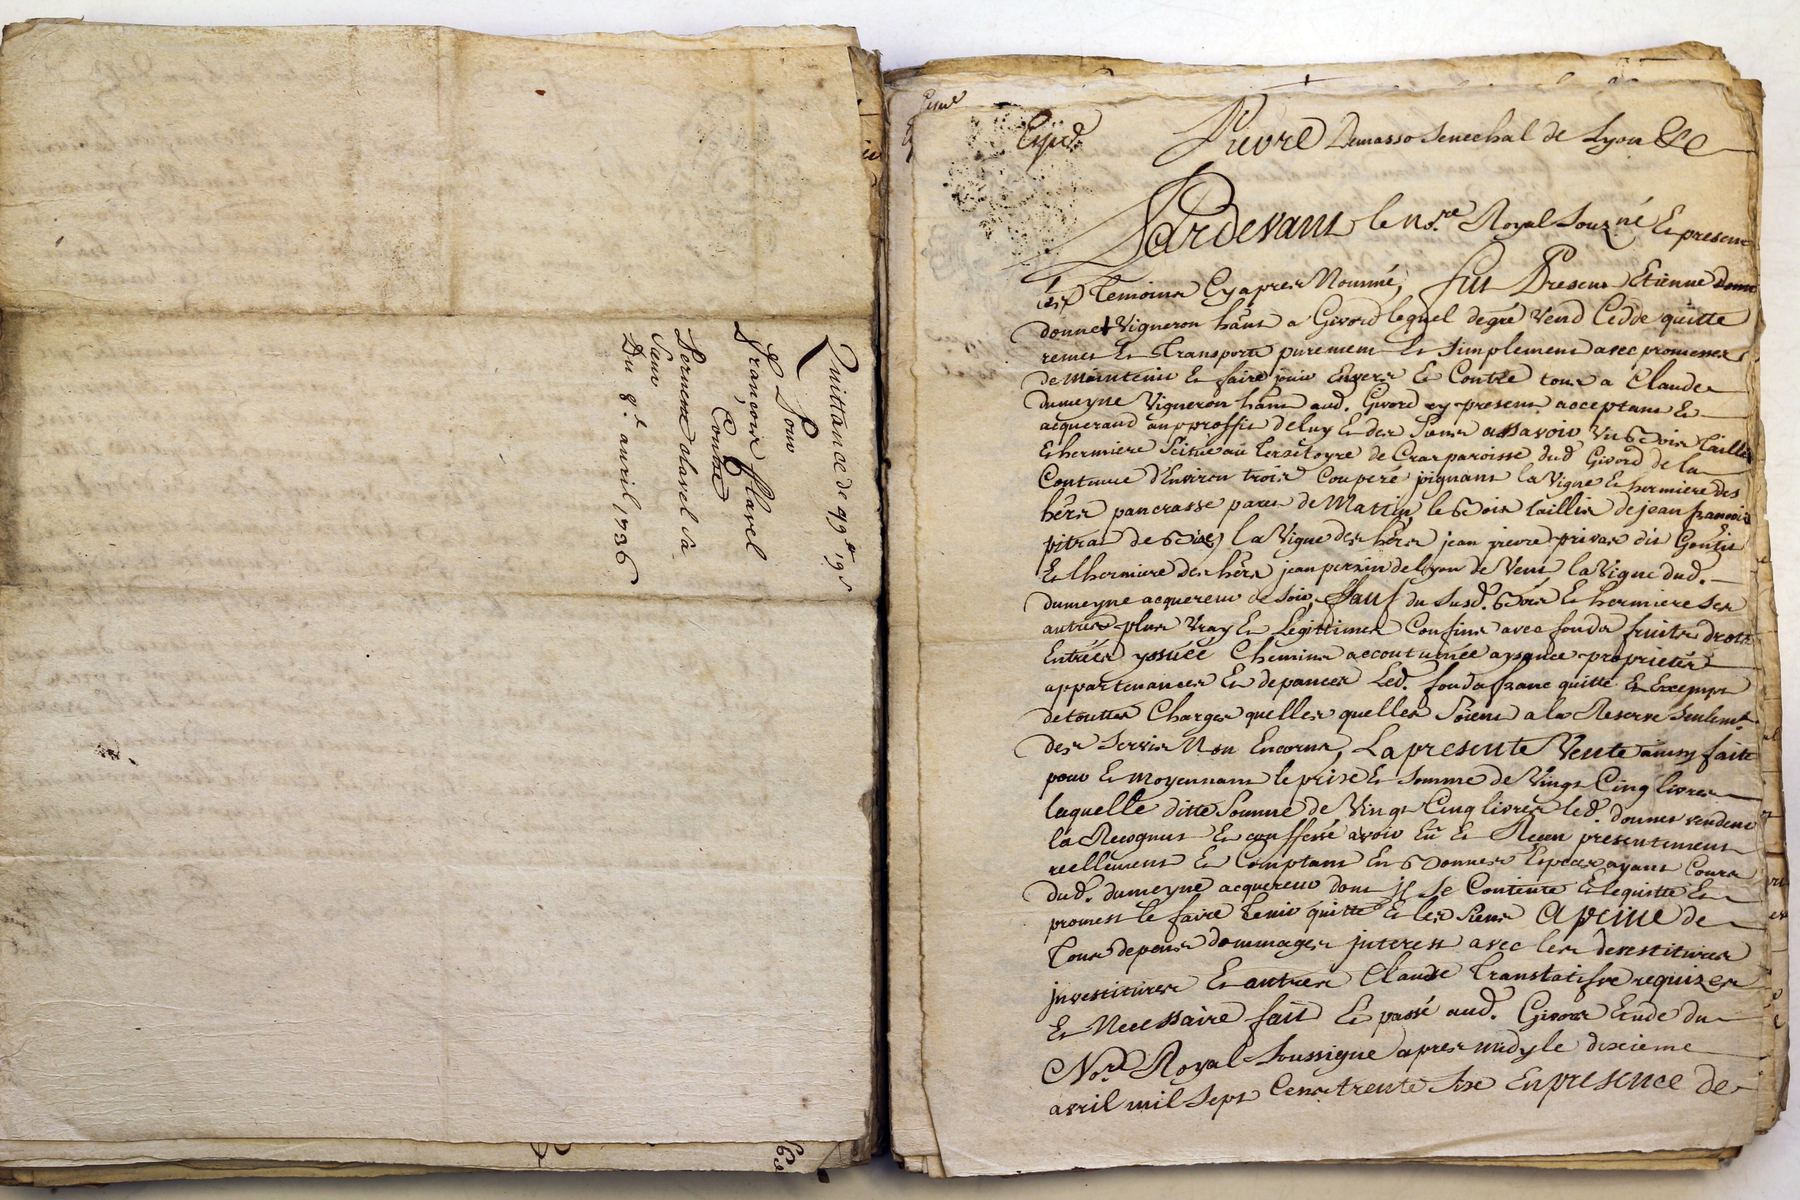 Quittance de 99ᵗᵗ 19ˢ
Pour
françois flavel
Contre
Pernette clavel sa
Sœur
Du 8ᵉ. avril 1736
Exped.
Pierre Demasso Senechal de Lyon &c
Pardevant le No.ʳᵉ Royal Souz.né Et presens
les Temoins Cy apres Nommé, fut Present Etienne Donn
donnet Vigneron hant a Givord lequel degré Vend Cedde quitte
remet Et Transporte purement Et Simplement avec promesses
de maintenir Et faire jouir Envers Et Contre tous a Claude
dumeyne Vigneron hant aud. Givord cy present acceptant Et
acquerand au proffit de luy Et des Siens assavoir Un Bois Taillis
Et hermiere Scitué au Territoyre de Cras paroisse dud Givord de la
Contenue d'Environ trois Couperé joignant la Vigne Et hermiere des
hers pancrasse pares de Matin le Bois taillis de jean françois
pitrat de Bize, la Vigne des hers jean pierre privas dit Gontit
Et lhermiere des hers jean perrin de lyon de Vent la Vigne dud.
dumeyne acquereur de Soir, Sauf du Susd. Bois Et hermiere Ses
autres plus Vray Et Legittimes Confins avec fonds fruits droits
Entrées yssuée Chemins accoutumée aysance proprietés
appartenances Et depances Led. fonds franc quitte Et Exempt
de touttes Charges quelles quelles Soient a la Reserve Seulemt.
des Servis Non Encorus, La presente Vente ainsy faite
pour Et moyennant le prix Et Somme de Vingt Cinq livres
laquelle ditte Somme de Vingt Cinq livres led. donnet vendeur
la Recognut Et confessé avoir Eu Et Receu presentement
reellement Et Comptant En Bonnes Especes ayant Cours
dud. dumeyne acquereur dont jl Se Contente Et lequitte Et
promest le faire Tenir quitte Et les Siens a peine de
Tous depens dommages jnterest avec les devestitures
jnvestitures Et autres Clause Translatifve requizes
Et Necessaire fait Et passé aud. Givors Etude du
No.re Royal Soussigné apres midy le dixieme
avril mil Sept Cens trente Six En presence de